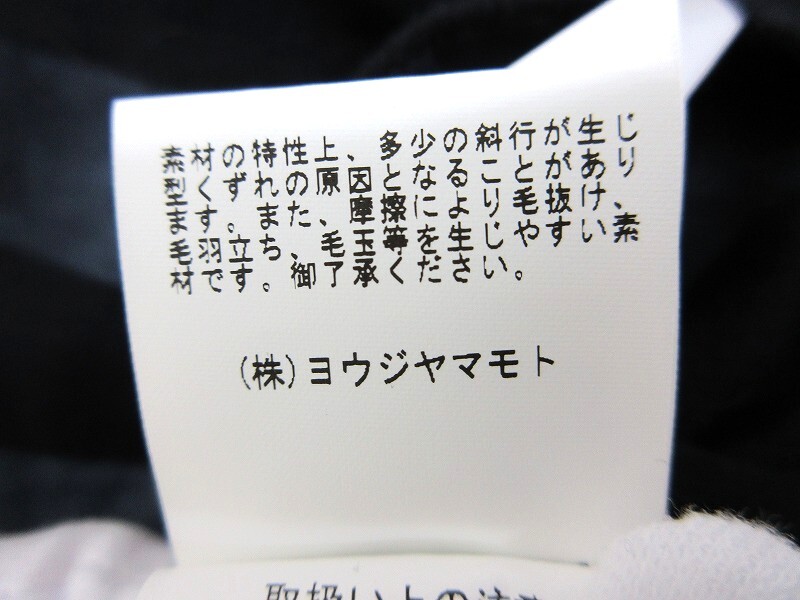 素材の特性上、多少の斜行が生じ
型くずれの原因となることがあり
ます。また、摩擦により毛抜け、
毛羽立ち、毛玉等を生じやすい素
材です。御了承ください。
(株)ヨウジヤマモト
取扱い上の注意